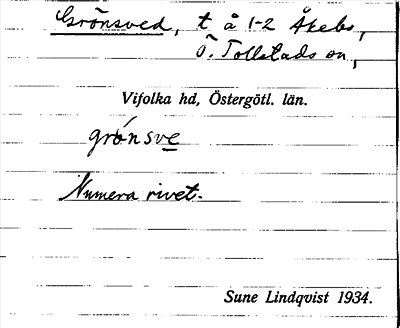 Grönsved, t å 1-2 Åkebo,
Ö. Tollstads sn,
Vifolka hd, Östergötl. län.
grónsve
Numera rivet.
Sune Lindqvist 1934.